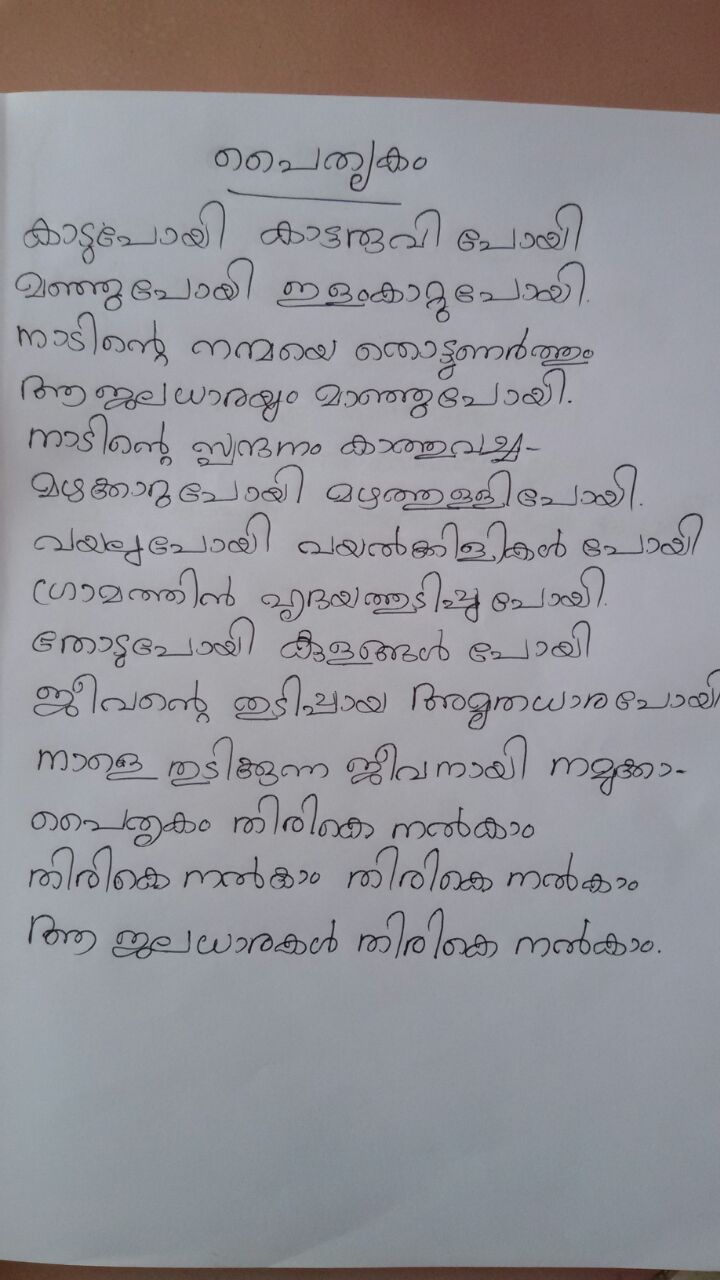 പൈതൃകം
കാടുപോയി കാട്ടരുവി പോയി
മഞ്ഞുപോയി ഇളംകാറ്റുപോയി.
നാടിന്റെ നന്മയെ തൊട്ടുണർത്തും
ആ ജലധാരയും മാഞ്ഞുപോയി.
നാടിന്റെ സ്പന്ദനം കാത്തുവച്ച-
മഴക്കാറുപോയി മഴത്തുള്ളിപോയി.
വയലുപോയി വയൽക്കിളികൾ പോയി
ഗ്രാമത്തിൻ ഹൃദയത്തുടിപ്പു പോയി.
തോടുപോയി കുളങ്ങൾ പോയി
ജീവന്റെ തുടിപ്പായ അമൃതധാരപോയി
നാളെ തുടിക്കുന്ന ജീവനായി നമുക്കാ-
പൈതൃകം തിരികെ നൽകാം
തിരികെ നൽകാം തിരികെ നൽകാം
ആ ജലധാരകൾ തിരികെ നൽകാം.